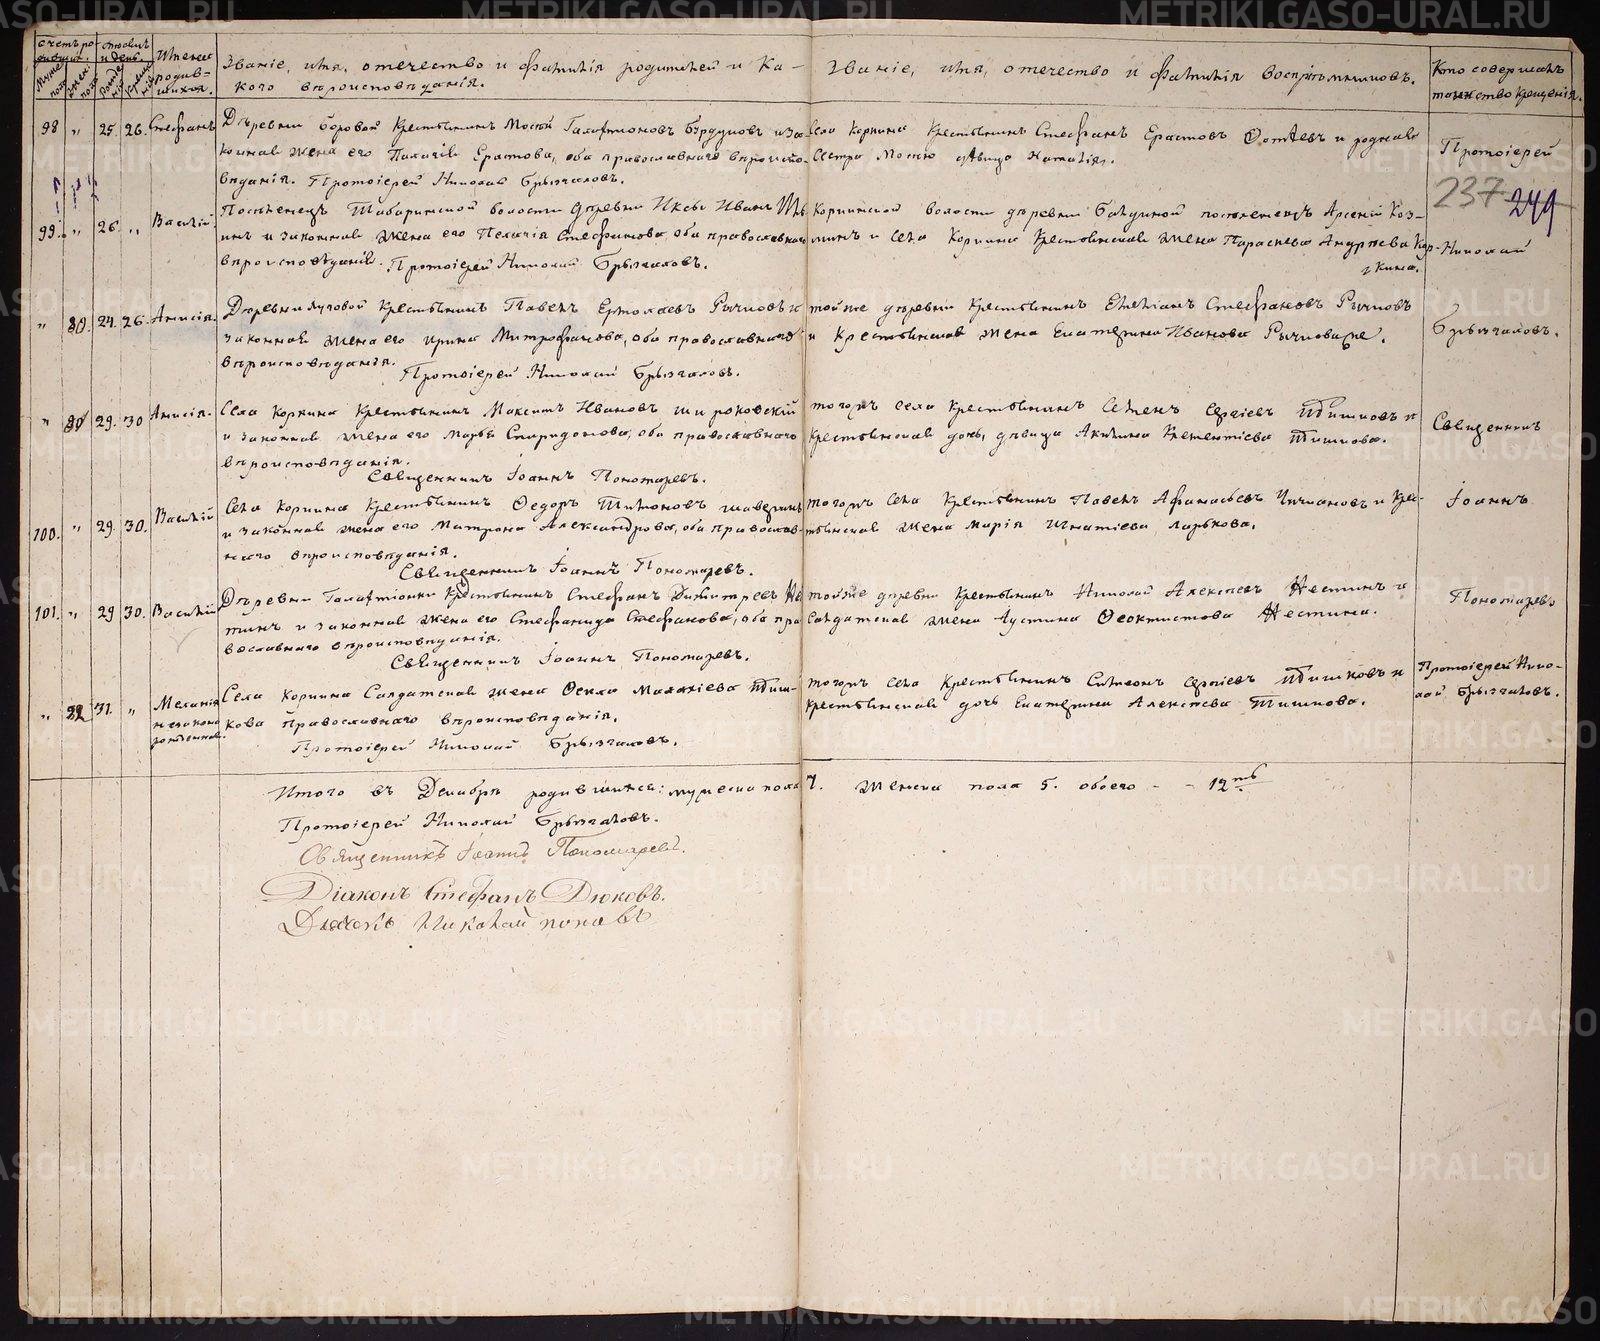 METRIKI.GASO-URAL.RU
Счетъ ро-
дившихъ.
Муже
пола
Жен.
пола
Мѣсяцъ
и день.
Рожде
нія
Креще
нія
Имена
родив-
шихся.
Званіе, имя, отечество и фамилія родителей и ка-
кого вѣроисповѣданія.
Званіе, имя, отечество и фамилія воспріемниковъ.
Кто совершалъ
таинство крещенія.
98 " 25. 26. Стефанъ
Деревни Боровой Крестьянинъ Галактіоновъ и за-
конная жена его Пелагія Ерастова, оба православнаго вѣроиспо-
вѣданія. Протоіерей Николай Брызгаловъ.
Села Коркина Крестьянинъ Стефанъ Ерастовъ и родная
Сестра дѣвица Наталія.
Протоіерей
237 249
99. " 26. " Василій.
Поселенецъ Табаринской волости деревни Иксы Иванъ
и законная жена его Пелагія Стефанова, оба православнаго
вѣроисповѣданія. Протоіерей Николай Брызгаловъ.
Коркинской волости деревни поселенецъ Арсеній Коз-
минъ и Села Коркина Крестьянская жена Параскева Андреева Кор-
кина.
Николай
" 24. 26. Анисія.
Деревни Луговой Крестьянинъ Павелъ Ермолаевъ Рычковъ и
законная жена его Ирина Митрофанова, оба православнаго
вѣроисповѣданія.
Протоіерей Николай Брызгаловъ.
тойже деревни Крестьянинъ Емеліанъ Стефановъ Рычковъ
и Крестьянская жена Екатерина Иванова Рычковыхъ.
Брызгаловъ.
" 90 29. 30 Анисія.
Села Коркина Крестьянинъ Максимъ Ивановъ Широковскій
и законная жена его Марья Спиридонова, оба православнаго
вѣроисповѣданія.
Священникъ Іоаннъ Пономаревъ.
тогожъ села Крестьянинъ Семенъ Сергіевъ и
Крестьянская дочь, дѣвица Акилина Клементіева
Священникъ
100. " 29. 30. Василій
Села Коркина Крестьянинъ Ѳедоръ Тимоновъ Шаверинъ
и законная жена его Матрона Александрова, оба православ-
наго вѣроисповѣданія.
Священникъ Іоаннъ Пономаревъ.
тогожъ села Крестьянинъ Павелъ Афанасьевъ и Крес-
тьянская жена Марія Игнатіева Ларькова.
Іоаннъ
101. " 29 30. Василій
Деревни Галактіонки Крестьянинъ Стефанъ Димитріевъ Нес
тинъ и законная жена его Стефанида Стефанова, оба пра
вославнаго вѣроисповѣданія.
Священникъ Іоаннъ Пономаревъ.
тойже деревни Крестьянинъ Николай Алексѣевъ Нестинъ и
Солдатская жена Іустина Ѳеоктистова Нестина.
Пономаревъ
" 31. " Меланія
незаконно
рожденная.
Села Коркина Солдатская жена Ѳекла Малахіева
кова Православнаго вѣроисповѣданія.
Протоіерей Николай Брызгаловъ.
тогожъ села Крестьянинъ Симеонъ Сергіевъ и
Крестьянская дочь Екатерина Алексѣева Тишкова.
Протоіерей Нико-
лай Брызгаловъ.
Итого въ Декабрѣ родившихся: мужеска пола 7. женска пола 5. обоего - - 12ть
Протоіерей Николай Брызгаловъ.
Священникъ Іоаннъ Пономаревъ.
Діаконъ Стефанъ Дюковъ.
Дьячокъ Николай Поповъ